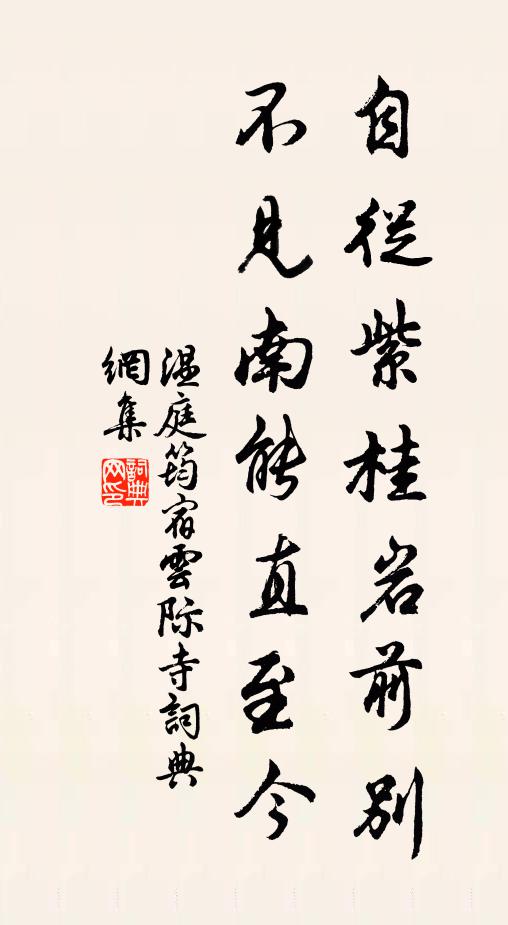 自從紫桂岩前別
不見南能直至今
温庭筠宿雲际寺詞典
網集
詞典
网印